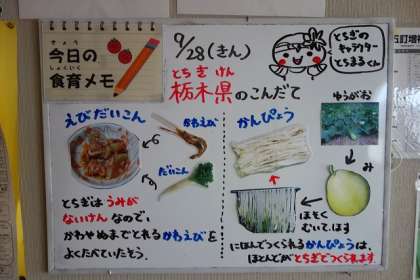 きょう
今日の
しょくいく
食育メモ
9/28(きん)
とちぎけん
栃木県のこんだて
とちぎの
キャラクター
とちまるくん
えびだいこん
かわえび
だいこん
とちぎはうみが
ないけんなので、
かわやぬまでとれるかわえびを
よくたべていたそう。
かんぴょう
ゆうがお
み
ほそく
むいて、ほす
にほんでつくられるかんぴょうは、
ほとんどがとちぎでつくられます。